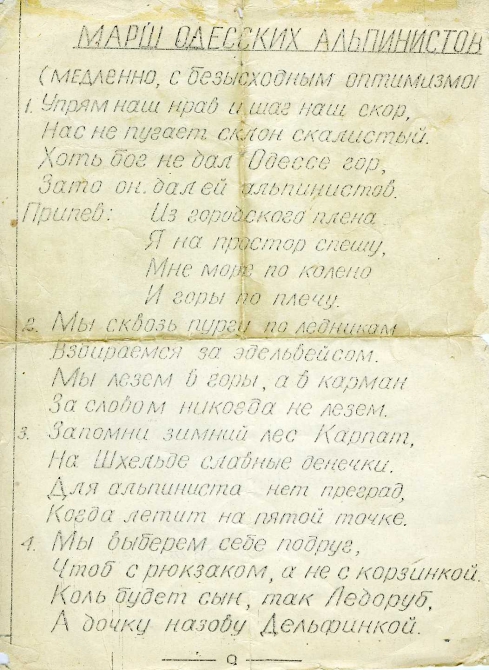 МАРШ ОДЕССКИХ АЛЬПИНИСТОВ
(МЕДЛЕННО, С БЕЗЫСХОДНЫМ ОПТИМИЗМО
1. Упрям наш нрав и шаг наш скор,
Нас не пугает склон скалистый.
Хоть бог не дал Одессе гор,
Зато он дал ей альпинистов.
Припев: Из городского плена
Я на простор спешу,
Мне море по колено
И горы по плечу.
2. Мы сквозь пурги по ледникам
Взбираемся за эдельвейсом.
Мы лезем в горы, а в карман
За словом никогда не лезем.
3. Запомни зимний лес Карпат,
На Шхельде славные денечки.
Для альпиниста нет преград,
Когда летит на пятой точке.
4. Мы выберем себе подруг,
Чтоб с рюкзаком, а не с корзинкой.
Коль будет сын, так Ледоруб,
А дочку назову Дельфинкой.